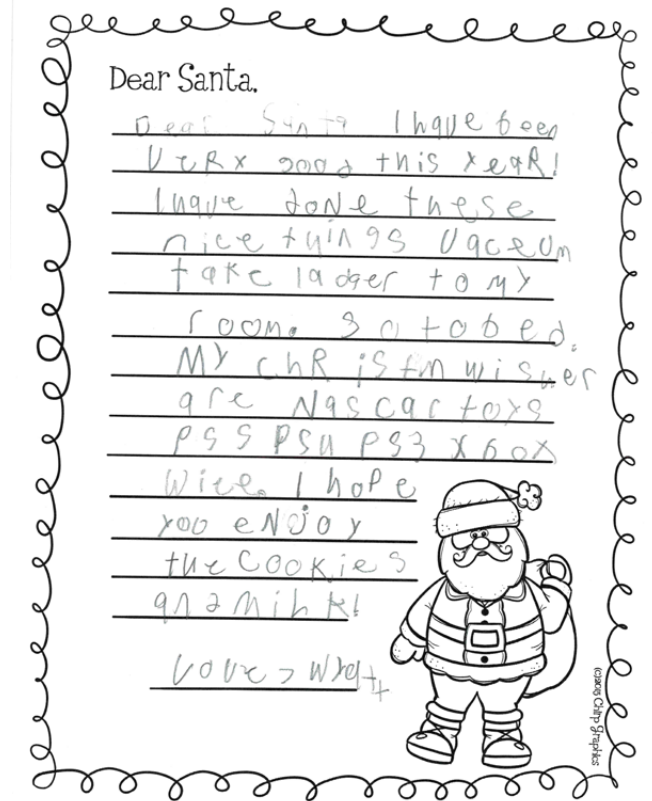 Dear Santa,
Dear Santa I have been
VeRy good this yeaR!
I have doNe these
nice things vaceum
take ladger to my
room. go to bed.
My chRistm wisher
are Nascar toys
PS5 PS4 PS3 X box
Wiee. I hope
you eNjoy
the Cookies
and Milk!
Love, Wyatt
(c)2013 Chirp Graphics